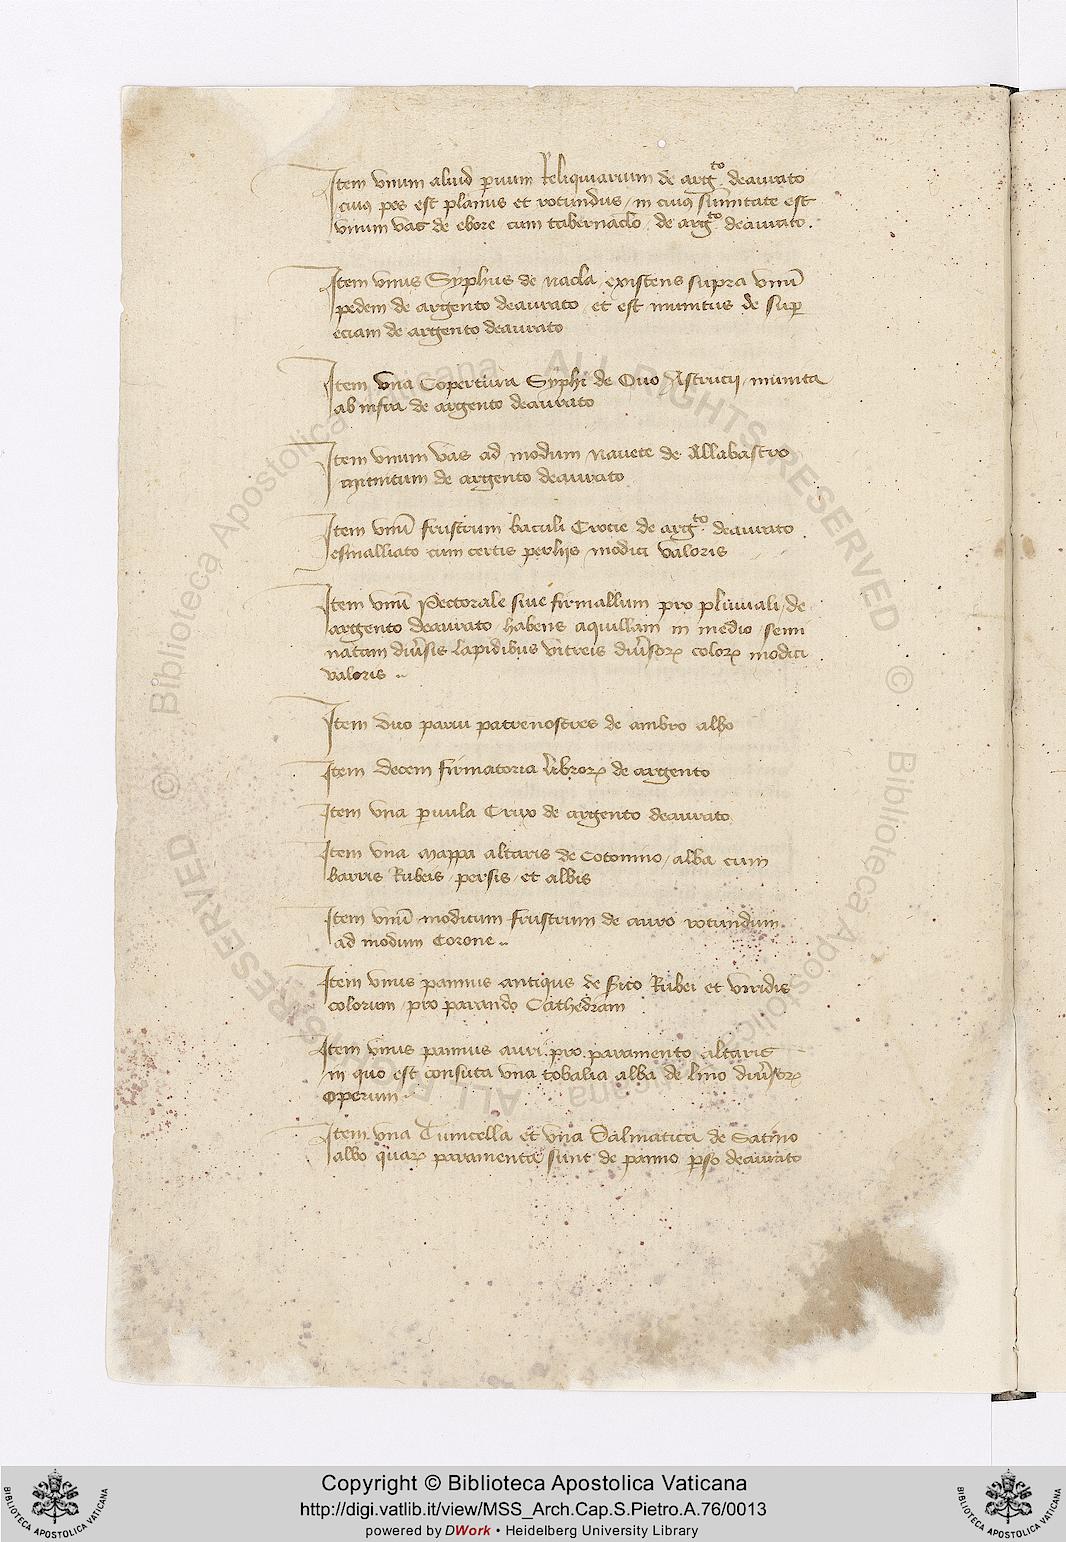 Item vnum aliud p̱uum Reliquiarium de arg.to deaurato
cuiꝰ pes est planus et rotundus / in cuiꝰ sūmitate est
vnum vas de ebore cum tabernaclo / de arg.to deaurato.
Item vnus Syphus de nacla / existens supra vnū
pedem de argento deaurato / et est munitus de suꝑ
eciam de argento deaurato
Item vna Copertura Syphi de Ouo Astrucij / munita
ab infra de argento deaurato
Item vnum vas ad modum nauete de Allabastro
munitum de argento deaurato
Item vnū frustrum baculi Crocie de arg.to deaurato
esmalliato cum certis perlijs modici valoris
Item vnū Pectorale siue firmallum pro pluuiali / de
argento deaurato habens aquillam in medio / semi
natam diūsis lapidibus vitreis diūsoꝝ coloꝝ modici
valoris ..
Item duo parui patrenostres de ambro albo
Item decem firmatoria libroꝝ de argento
Item vna ꝑuula Crux de argento deaurato
Item vna mappa altaris de Cotonino / alba cum
barris Rubeis / persis / et albis
Item vnū modicum frustrum de auro rotundum
ad modum Corone ..
Item vnus pannus antiqus de Sirico Rubei et viridis
colorum / pro parando Cathedram
Item vnus pannus auri pro paramento altaris
in quo est consuta vna tobalia alba de lino diūsoꝝ
operum
Item vna Tunicella et vna Dalmatica de Satino
albo quaꝝ paramenta sunt de panno ꝑso deaurato
© Biblioteca Apostolica Vaticana ALL RIGHTS RESERVED
© Biblioteca Apostolica Vaticana ALL RIGHTS RESERVED
Copyright © Biblioteca Apostolica Vaticana
http://digi.vatlib.it/view/MSS_Arch.Cap.S.Pietro.A.76/0013
powered by DWork • Heidelberg University Library
BIBLIOTECA APOSTOLICA VATICANA
BIBLIOTECA APOSTOLICA VATICANA